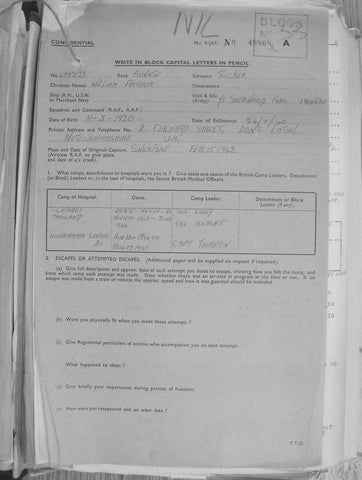 NIL
BLOCK
No 55
CONFIDENTIAL
M.I. 9/JAP/ No 49865 A
WRITE IN BLOCK CAPITAL LETTERS IN PENCIL
No. Rank PRIVATE Surname TUCKER
Christian Names WILLIAM ARTHUR Decorations
Ship (R.N., U.S.N. or Merchant Navy) Unit & Div. (Army) SHERWOOD FORS.
Squadron and Command (R.A.F., A.A.F.)
Date of Birth 31-5-1920 Date of Enlistment
Private Address and Telephone No. 2 ORCHARD STREET, LONG EATON,
NOTTINGHAMSHIRE
Place and Date of Original Capture SINGAPORE FEB 15 1942
(Aircrew R.A.F. to give place
and date of a/c crash).
1. What camps, detachments or hospitals were you in ? Give dates and names of the British Camp Leaders, Detachment
(or Block) Leaders or, in the case of hospitals, the Senior British Medical Officers.
Camp or Hospital. Dates. Camp Leader. Detachment or Block Leader (if any).
CHANGI COL
THAILAND JUNE COL KNIGHT
1944
CAPT
2. ESCAPES OR ATTEMPTED ESCAPES. (Additional paper will be supplied on request if required).
(a) Give full description and approx. date of each attempt you made to escape, showing how you left the camp, and
from which camp each attempt was made. State whether there was an air-raid in progress at the time or not. If an
escape was made from a train or vehicle the approx. speed and how it was guarded should be included.
(b) Were you physically fit when you made these attempts ?
(c) Give Regimental particulars of anyone who accompanied you on each attempt.
What happened to them ?
(d) Give briefly your experiences during periods of freedom.
(e) How were you recaptured and on what date ?
P.T.O.